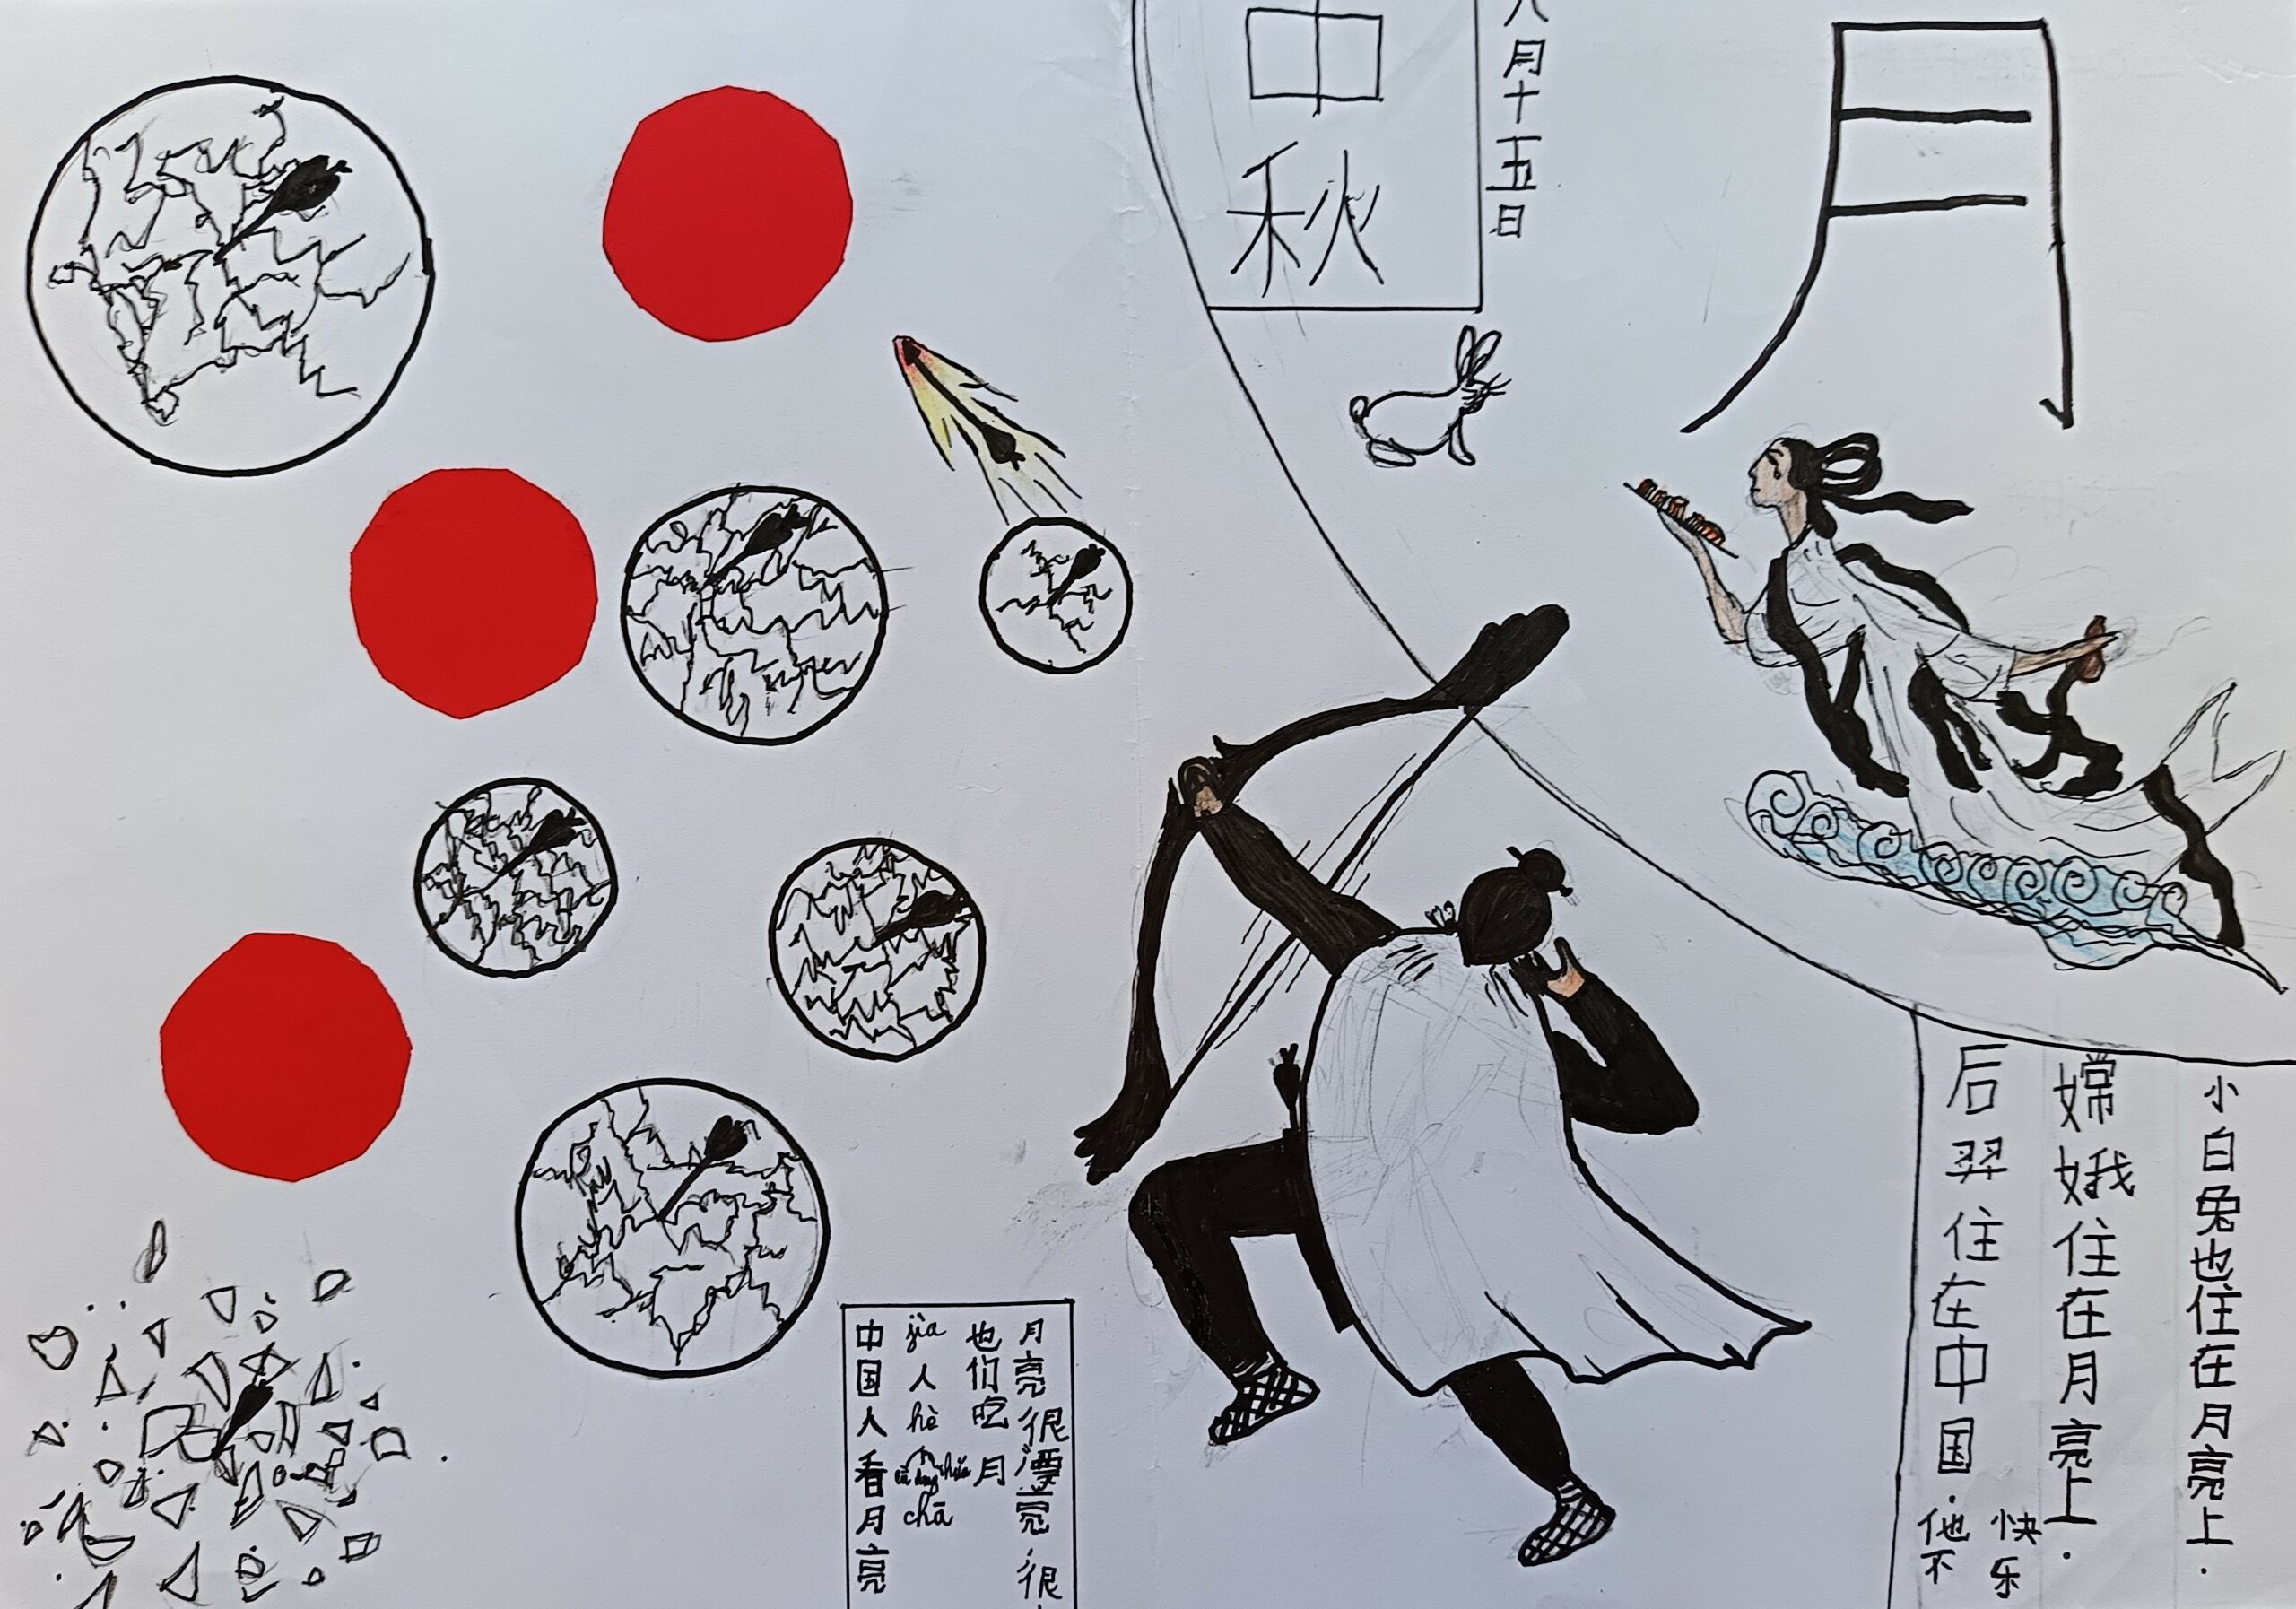 中秋
八月十五日
月
中国人看月亮
jìa人hè chā
也们吃月
月亮很漂亮,很
后羿住在中国.
他不
快乐
嫦娥住在月亮上.
小白兔也住在月亮上.